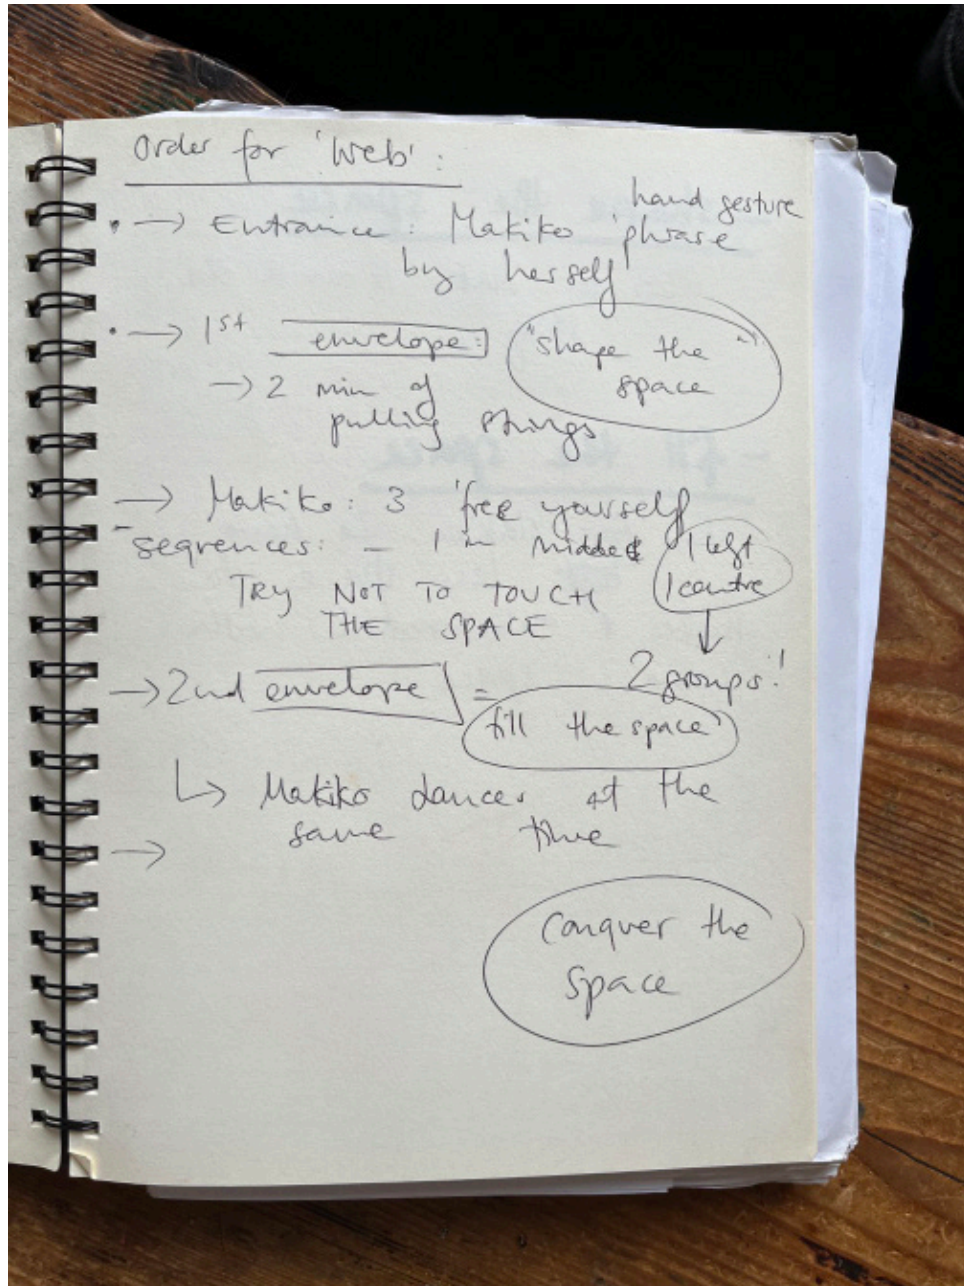 Order for 'Web':
hand gesture
• → Entrance: Makiko phrase
by herself
• → 1st envelope:
"shape the"
space
→ 2 min of
pulling strings
→ Makiko: 3 'free yourself
- sequences: - 1 in middle
1 left
1 centre
TRY NOT TO TOUCH
THE SPACE
2 groups!
→ 2nd envelope =
fill the space
↳ Makiko dances at the
same time
→
Conquer the
space
- fill the space